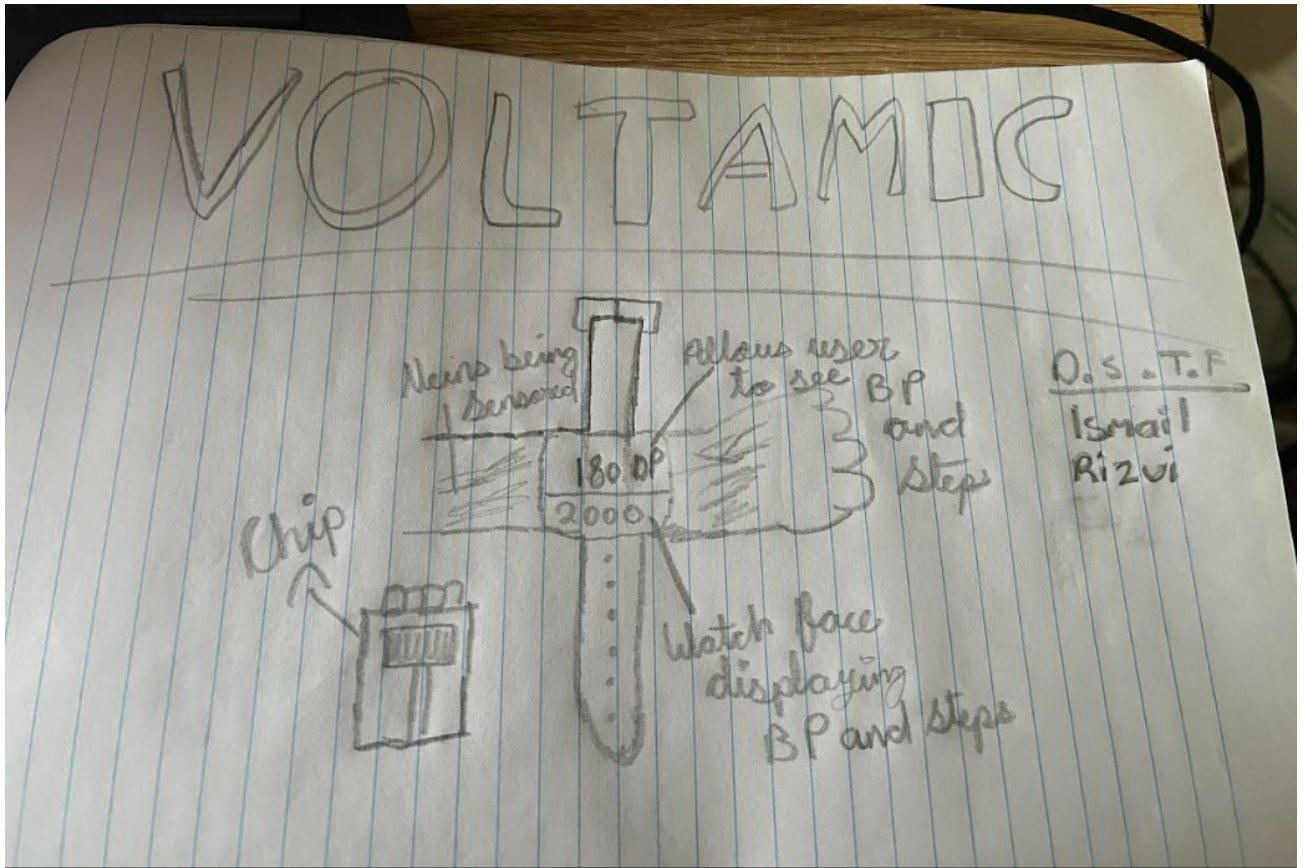 VOLTAMIC
Veins being
sensored
Allows user
to see BP
and
Steps
O.S.T.F
Ismail
Rizvi
180 BP
2000
Chip
Watch face
displaying
BP and steps